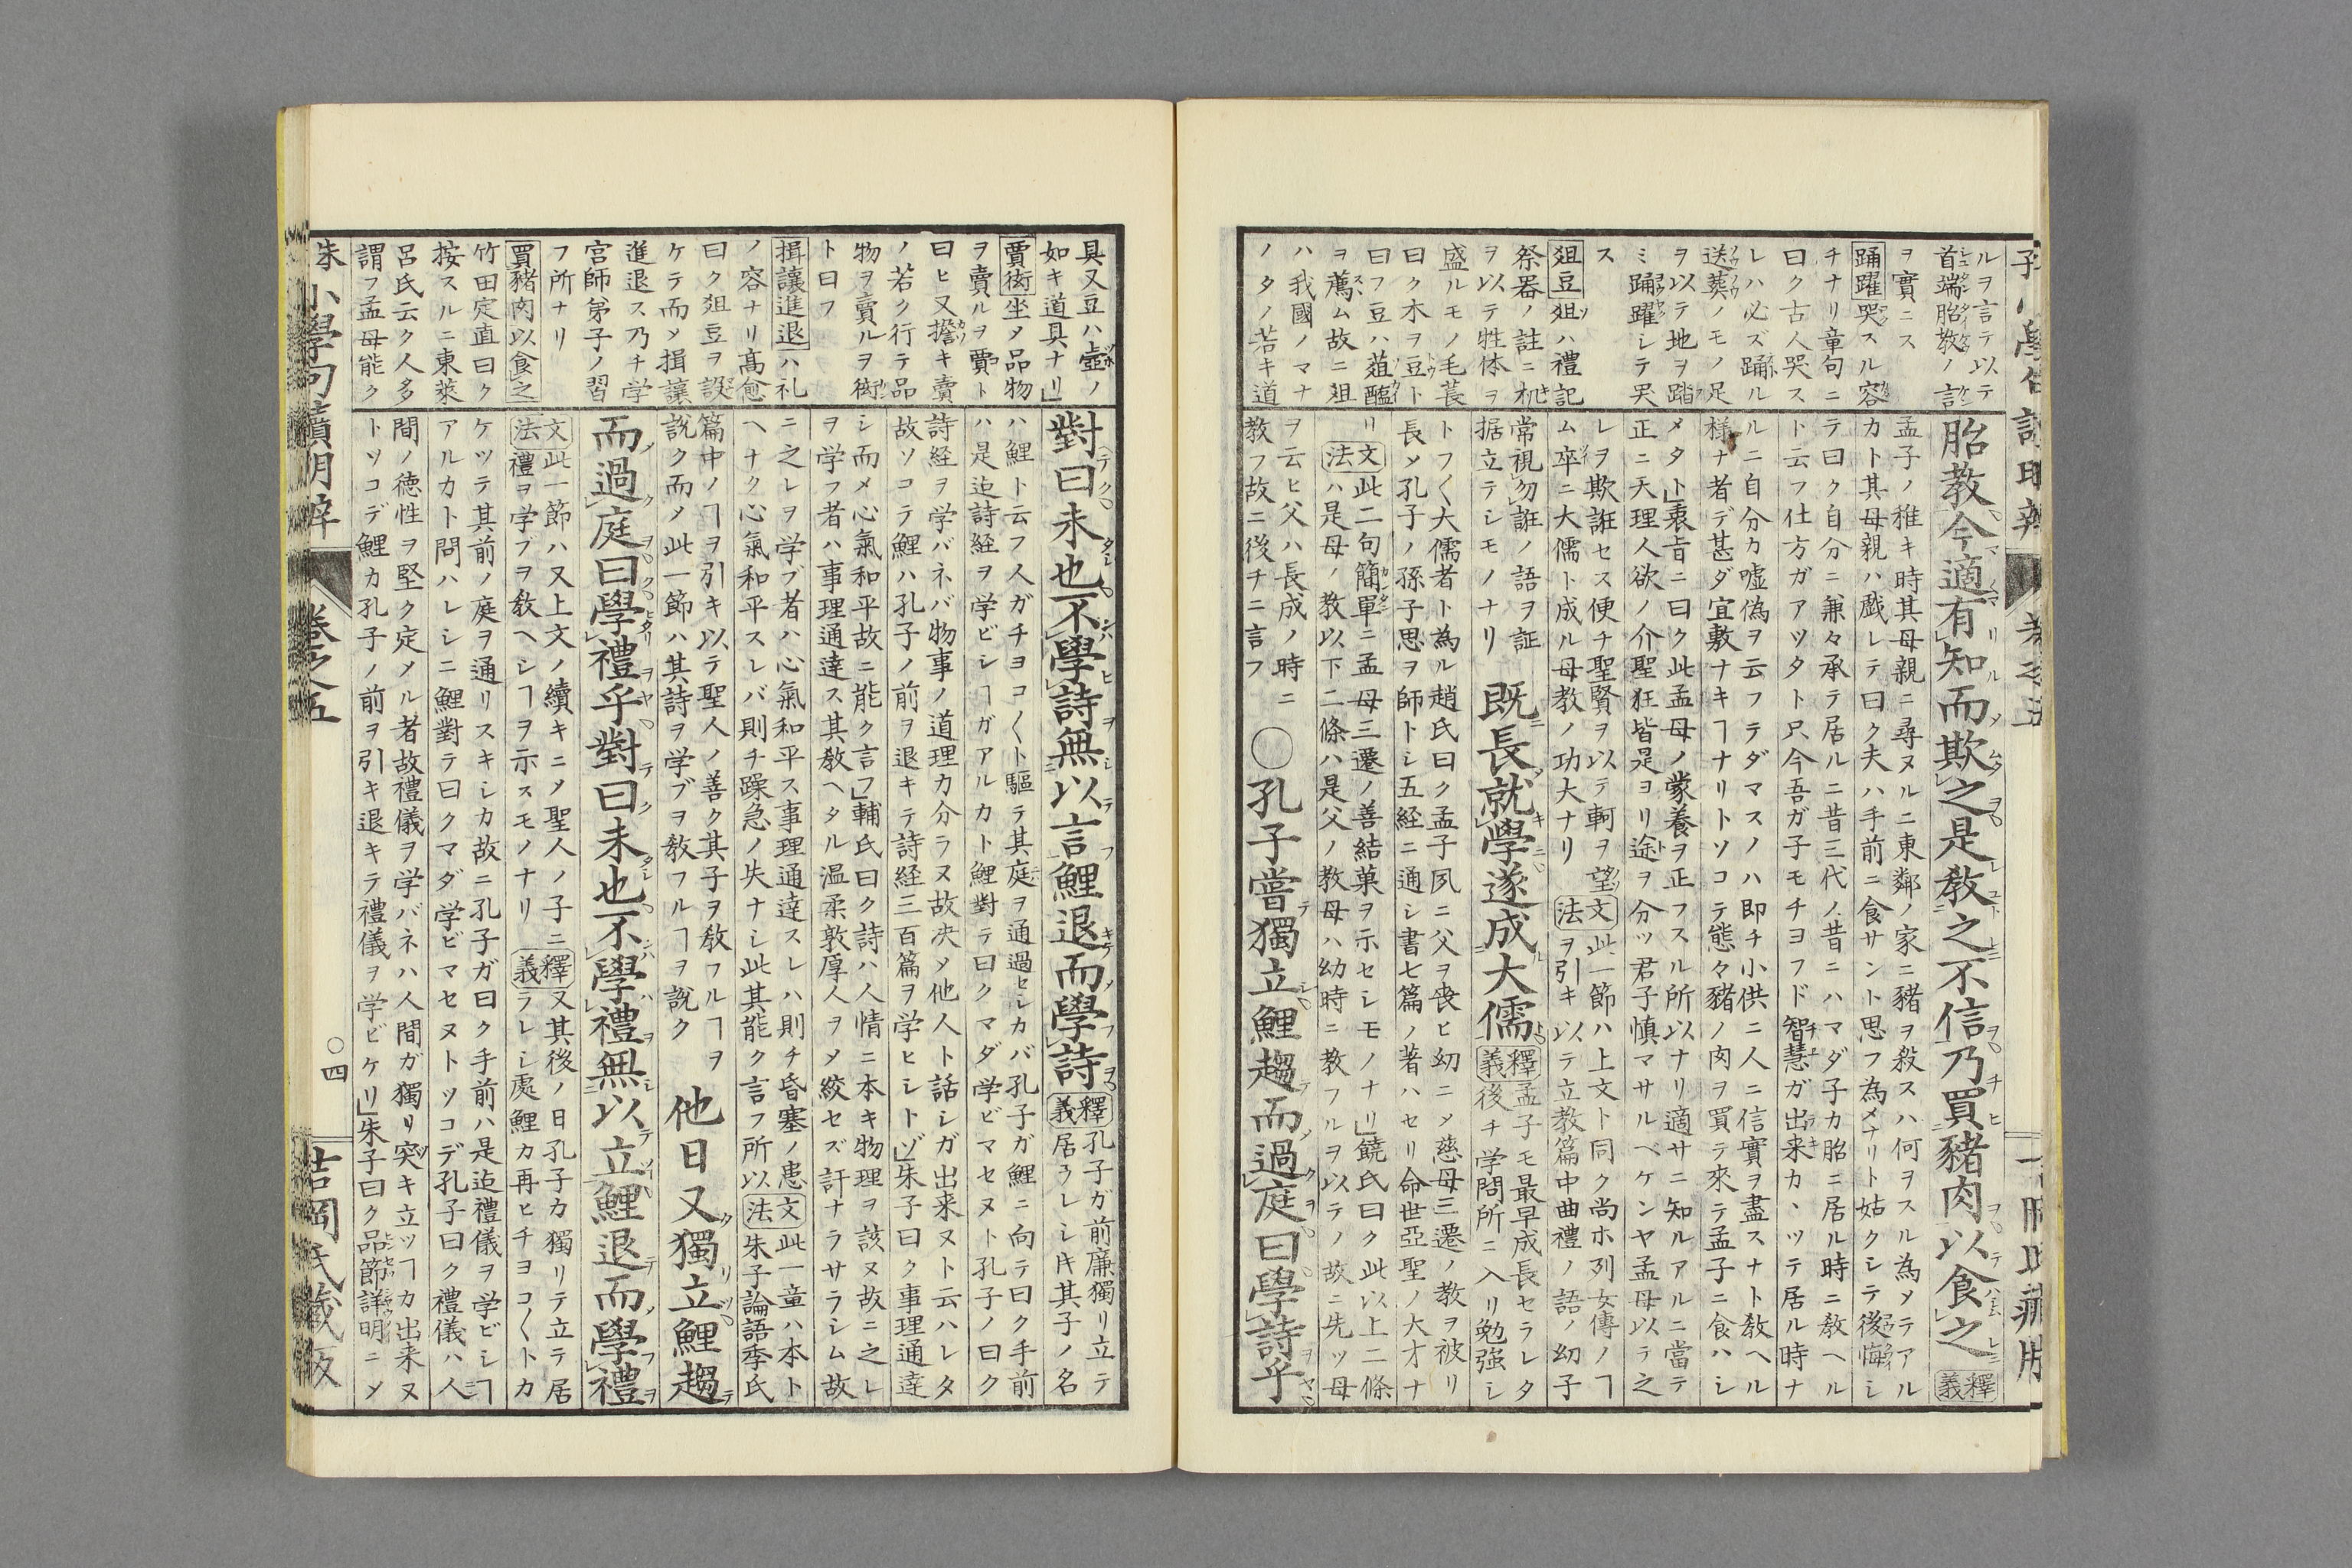 ルヲ言テ以テ
首端胎教ノ言
ヲ實ニス
踊躍哭スル容
チナリ章句ニ
曰ク古人哭ス
レハ必ズ踊ル
送葬ノモノ足
ヲ以テ地ヲ踏
ミ踊躍シテ哭
ス
爼豆爼ハ禮記
祭器ノ註ニ机
ヲ以テ牲体ヲ
盛ルモノ毛萇
曰ク木ヲ豆ト
曰フ豆ハ葅醢
ヲ薦ム故ニ爼
ハ我國ノマナ
ノタノ若キ道
胎教今適有知而欺之是教之不信乃買豬肉以食之釋義
孟子ノ稚キ時其母親ニ尋ヌルニ東鄰ノ家ニ豬ヲ殺スハ何ヲスル為メラアル
カト其母親ハ戲レテ曰ク夫ハ手前ニ食サント思フ為メナリト姑クシテ後悔シ
テ曰ク自分ニ兼々承テ居ルニ昔三代ノ昔ニハマダ子カ胎ニ居ル時ニ教ヘル
ト云フ仕方ガアツタト只今吾ガ子モチヨフド智慧ガ出来カヽツテ居ル時ナ
ルニ自分カ嘘偽ヲ云フテダマスノハ即チ小供ニ人ニ信實ヲ盡スナト教ヘル
様ナ者デ甚ダ宜敷ナキヿナリトソコテ態々豬ノ肉ヲ買テ來テ孟子ニ食ハシ
メタト」衷旨ニ曰ク此孟母ノ蒙養ヲ正フスル所以ナリ適サニ知ルアルニ當テ
正ニ天理人欲ノ介聖狂皆是ヨリ途ヲ分ツ君子慎マサルベケンヤ孟母以テ之
レヲ欺誑セス便チ聖賢ヲ以テ軻ヲ望
ム卒ニ大儒ト成ル母教ノ功大ナリ
文法此一節ハ上文ト同ク尚ホ列女傳ノヿ
ヲ引キ以テ立教篇中曲禮ノ語ノ幼子
常視勿誑ノ語ヲ証
据立テシモノナリ
既長就學遂成大儒釋義孟子モ最早成長セラレタ
後チ学問所ニ入リ勉強シ
トフ〱大儒者ト為ル趙氏曰ク孟子夙ニ父ヲ喪ヒ幼ニメ慈母三遷ノ教ヲ被リ
長メ孔子ノ孫子思ヲ師トシ五経ニ通シ書七篇ノ著ハセリ命世亞聖ノ大才ナ
リ文法此二句簡單ニ孟母三遷ノ善結菓ヲ示セシモノナリ」饒氏曰ク此以上二條
ハ是母ノ教以下二條ハ是父ノ教母ハ幼時ニ教フルヲ以テノ故ニ先ツ母
ヲ云ヒ父ハ長成ノ時ニ
教フ故ニ後チニ言フ
○孔子嘗獨立鯉趨而過庭曰學詩乎
具又豆ハ壺ノ
如キ道具ナリ
賈衒坐メ品物
ヲ賣ルヲ賈ト
曰ヒ又擔キ賣
ノ若ク行テ品
物ヲ賣ルヲ衒
ト曰フ
揖讓進退ハ礼
ノ容ナリ髙愈
曰ク爼豆ヲ設
ケテ而メ揖讓
進退ス乃チ学
宮師弟子ノ習
フ所ナリ
買豬肉以食之
竹田定直曰ク
按スルニ東萊
呂氏云ク人多
謂フ孟母能ク
對曰未也不學詩無以言鯉退而學詩釋義孔子ガ前廉獨リ立テ
居ラレシ𪜈其子ノ名
ハ鯉ト云フ人ガチヨコ〱ト驅テ其庭ヲ通過セシカバ孔子ガ鯉ニ向テ曰ク手前
ハ是迄詩経ヲ学ビシヿガアルカト鯉對テ曰クマダ学ビマセヌト孔子ノ曰ク
詩経ヲ学バネバ物事ノ道理カ分ラヌ故决メ他人ト話シガ出来ヌト云ハレタ
故ソコテ鯉ハ孔子ノ前ヲ退キテ詩経三百篇ヲ学ヒシトゾ」朱子曰ク事理通達
シ而メ心氣和平故ニ能ク言フ」輔氏曰ク詩ハ人情ニ本キ物理ヲ該ヌ故ニ之レ
ヲ学フ者ハ事理通達ス其教ヘタル温柔敦厚人ヲメ絞セズ訐ナラサラシム故
ニ之レヲ学ブ者ハ心氣和平ス事理通達スレハ則チ昏塞ノ患
ヘナク心氣和平スレバ則チ躁急ノ失ナシ此其能ク言フ所以
文法此一章ハ本ト
朱子論語季氏
篇中ノヿヲ引キ以テ聖人ノ善ク其子ヲ教フルヿヲ
説ク而ノ此一節ハ其詩ヲ学ブヲ教フルヿヲ說ク
他日又獨立鯉趨
而過庭曰學禮乎對曰未也不學禮無以立鯉退而學禮
文法此一節ハ又上文ノ續キニメ聖人ノ子ニ
禮ヲ学ブヲ教ヘシヿヲ示スモノナリ
釋義又其後ノ日孔子カ獨リテ立テ居
ラレシ處鯉カ再ヒチヨコ〱トカ
ケツテ其前ノ庭ヲ通リスキシカ故ニ孔子ガ曰ク手前ハ是迄禮儀ヲ学ビシヿ
アルカト問ハレシニ鯉對テ曰クマダ学ビマセヌトツコデ孔子曰ク禮儀ハ人
間ノ德性ヲ堅ク定メル者故禮儀ヲ学バネハ人間ガ獨リ突キ立ツヿカ出来ヌ
トソコデ鯉カ孔子ノ前ヲ引キ退キラ禮儀ヲ学ビケリ」朱子曰ク品節詳明ニメ
小學句讀明辨
卷之五
○四
吉岡氏藏版